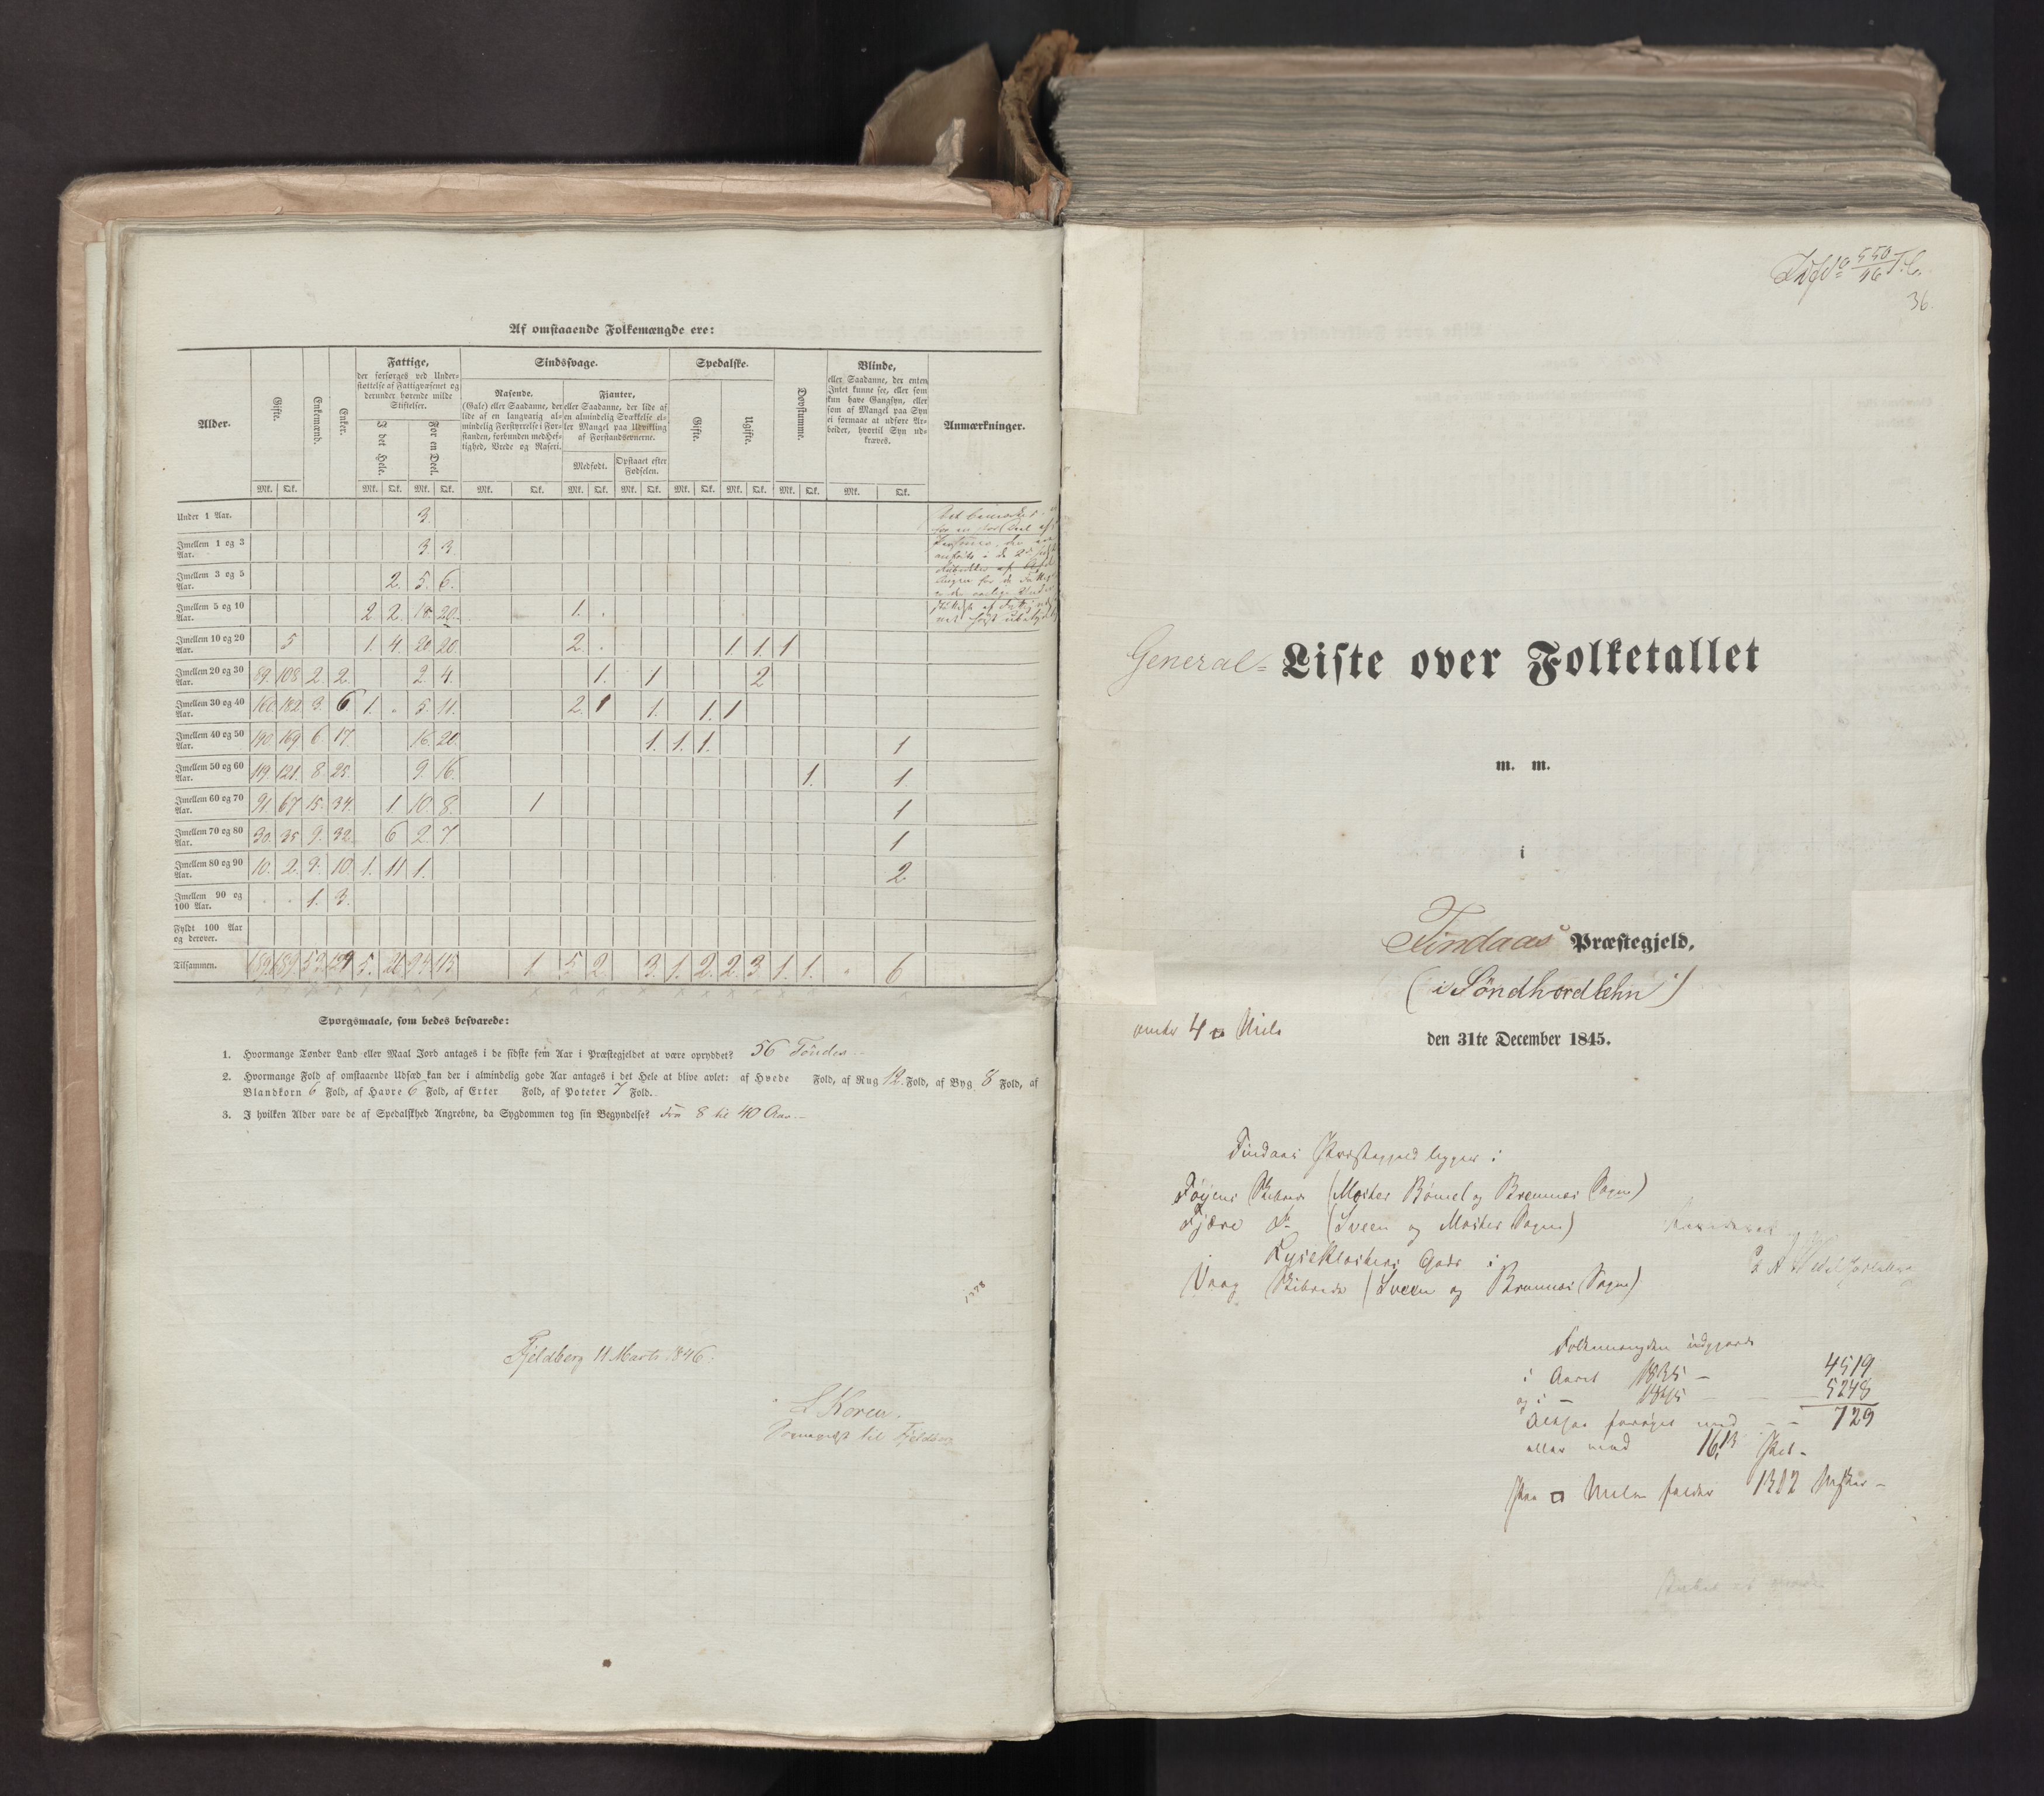 Af omstaaende Folkemængde ere:
Alder. Gifte. Enkemænd. Enker. Fattige, Sindssvage. Spedalske. Døvstumme. Blinde, Anmærkninger.
der forsørges ved Under-
støttelse af Fattigvæsenet og
derunder hørende milde
Stiftelser.
I det Hele. For en Deel.
Rasende,
(Gale) eller Saadanne, der
lide af en langvarig al-
mindelig Forstyrrelse i For-
standen, forbunden med Hef-
tighed, Vrede og Raseri.
Fjanter,
eller Saadanne, der lide af
en almindelig Svækkelse el-
ler Mangel paa Udvikling
af Forstandsevnerne.
Medfødt. Opstaaet efter
Fødselen.
Gifte. Ugifte.
eller Saadanne, der enten
Intet kunne see, eller som
kun have Gangsyn, eller
som af Mangel paa Syn
ei formaae at udføre Ar-
beider, hvortil Syn ud-
kræves.
Mk. Qk. Mk. Qk. Mk. Qk. Mk. Qk. Mk. Qk. Mk. Qk. Mk. Qk. Mk. Qk. Mk. Qk. Mk. Qk.
Under 1 Aar. 3.
Imellem 1 og 3 Aar. 3 3
Imellem 3 og 5 Aar. 2. 5. 6.
Imellem 5 og 10 Aar. 2 2. 18. 20. 1.
Imellem 10 og 20 Aar. 5 1. 4. 20 20. 2. 1. 1. 1
Imellem 20 og 30 Aar. 89. 108 2. 2. 2. 4. 1. 1 2
Imellem 30 og 40 Aar. 160. 182. 3. 6. 1. 5. 11. 2. 1 1. 1. 1
Imellem 40 og 50 Aar. 190. 169. 6. 17. 16. 20. 1. 1. 1. 1
Imellem 50 og 60 Aar. 119. 121. 8. 25. 9. 16. 1. 1.
Imellem 60 og 70 Aar. 91 67 15. 34. 1 10. 8. 1 1
Imellem 70 og 80 Aar. 30. 35 9. 32. 6 2 7 1
Imellem 80 og 90 Aar. 10. 2. 9. 10. 1. 11 1. 2
Imellem 90 og 100 Aar. 1. 3.
Fyldt 100 Aar og derover.
Tilsammen. 1 5 2 3. 1. 2. 2. 3. 1. 1. 6
Spørgsmaale, som bedes besvarede:
1. Hvormange Tønder Land eller Maal Jord antages i de sidste fem Aar i Præstegjeldet at være opryddet? 56 Tønder
2. Hvormange Fold af omstaaende Udsæd kan der i almindelig gode Aar antages i det Hele at blive avlet: af Hvede Fold, af Rug 12. Fold, af Byg 8 Fold, af
Blandkorn 6 Fold, af Havre 6 Fold, af Erter Fold, af Poteter 7 Fold.
3. I hvilken Alder vare de af Spedalskhed Angrebne, da Sygdommen tog sin Begyndelse? Fra 8 til 40 Aar
Fjeldberg 11 Marts 1846.
L Koren.
Sognepræst til Fjeldberg
36.
General- Liste over Folketallet
m. m.
i
Findaas Præstegjeld,
(i Söndhordlehn)
under 4 □ Mile
den 31te December 1845.
Findaas Præstegjeld ligger i
Föyens Skibrede (Moster Bömel og Bremnes Sogne)
Fjære do (Sveen og Moster Sogne)
Lyseklosters Gods i
Vaag Skibrede (Sveen og Bremnes Sogne)
Folkemængden udgjorde
i Aaret 1835 - 4519
og i - 1845 - - 5248
altsaa forøget med - - 729
eller med 16,13 Pct.
Paa □ Miil falder 1312 Msker